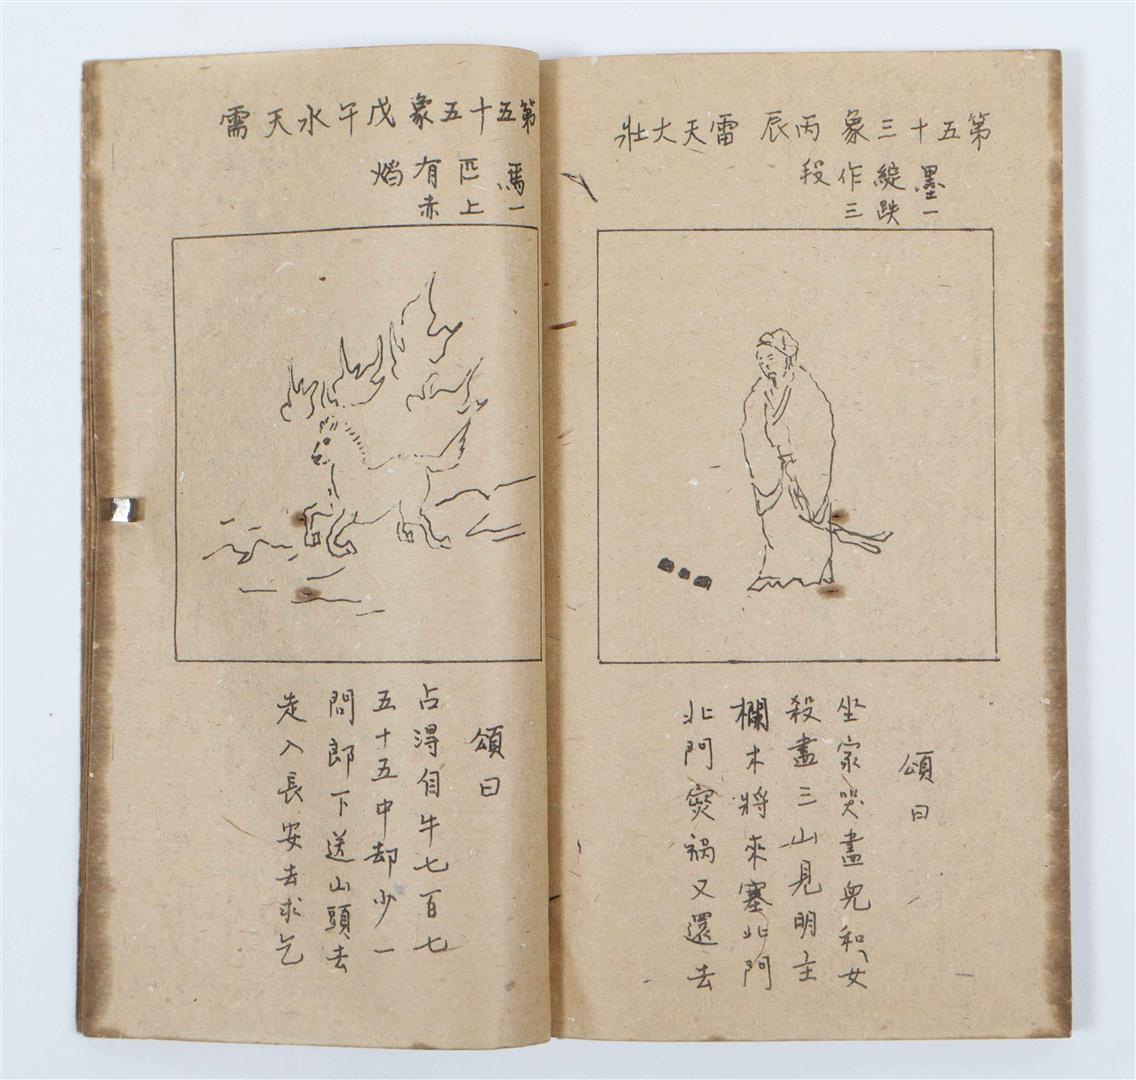 第五十三象 丙辰 雷天大壯
墨一
綻跌
作三
段
頌曰
坐家哭盡兒和女
殺盡三山見明主
欄木將來塞北門
北門災禍又還去
第五十五象戊午水天需
馬一
匹上
有赤
焰
頌曰
占得自牛七百七
五十五中却少一
問郎下送山頭去
走入長安去求乞